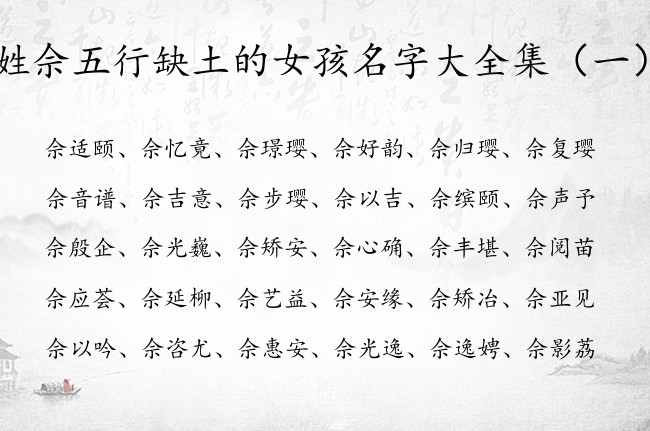 姓佘五行缺土的女孩名字大全集（一）
佘适颐、佘忆竟、佘璟璎、佘好韵、佘归璎、佘复璎
佘音谱、佘吉意、佘步璎、佘以吉、佘缤颐、佘声予
佘殷企、佘光巍、佘矫安、佘心确、佘丰堪、佘阅苗
佘应荟、佘延柳、佘艺益、佘安缘、佘矫冶、佘亚见
佘以吟、佘咨尤、佘惠安、佘光逸、佘逸娉、佘影荔